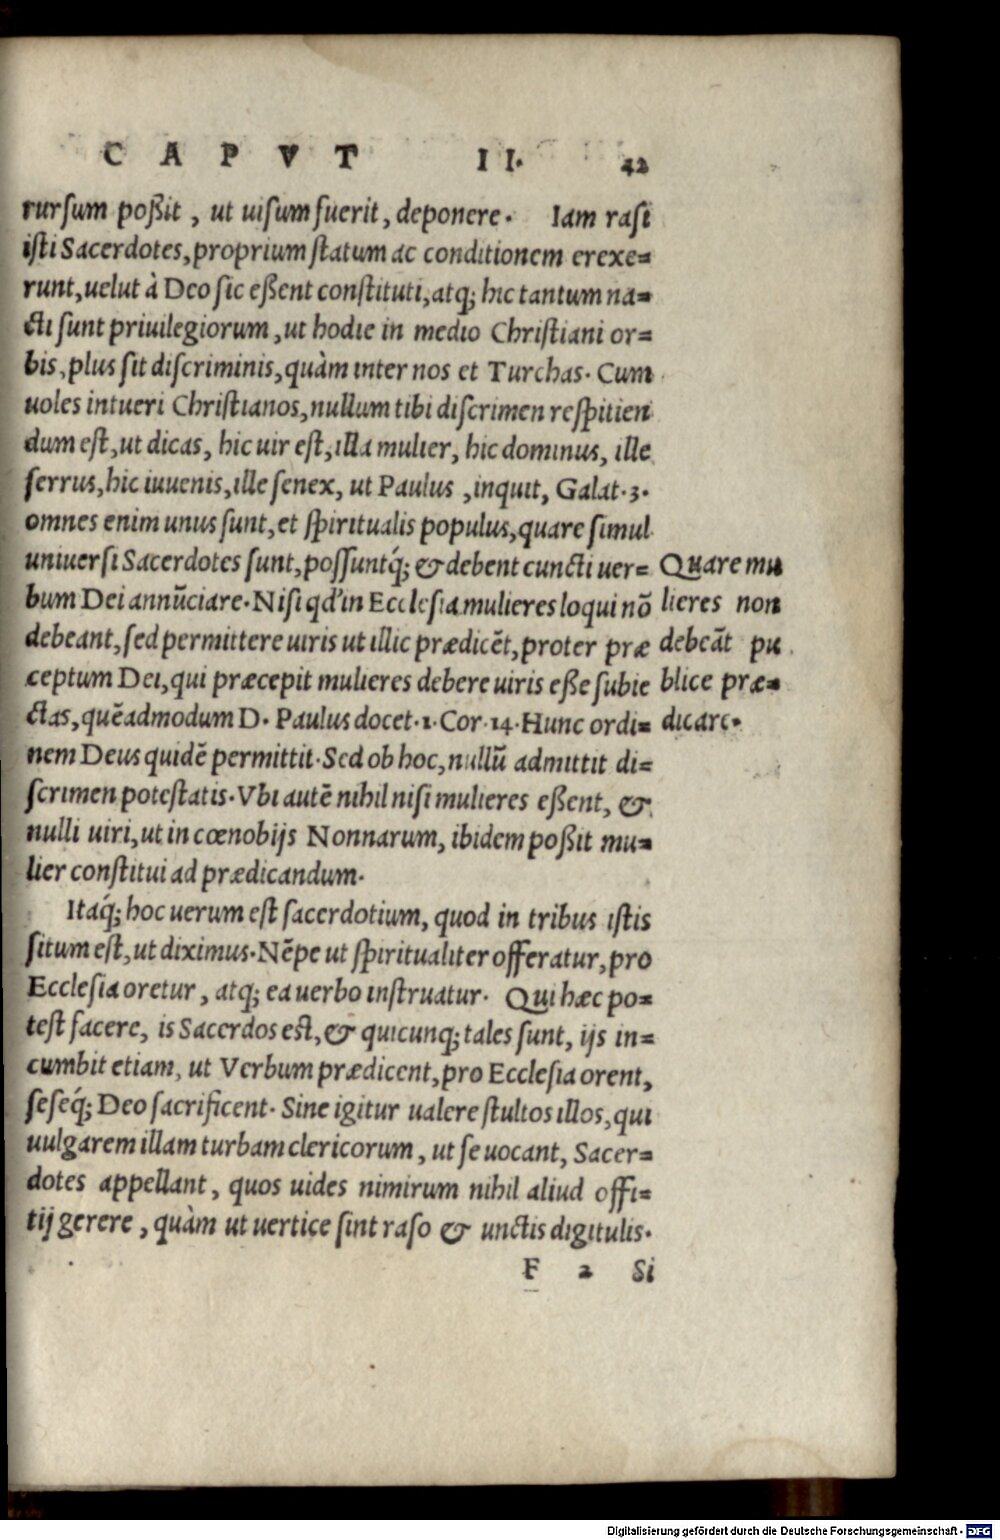 CAPVT II. 42
rursum poßit, ut uisum fuerit, deponere. Iam rasi
isti Sacerdotes, proprium statum ac conditionem erexe=
runt, uelut à Deo sic eßent constituti, atq; hic tantum na=
cti sunt priuilegiorum, ut hodie in medio Christiani or=
bis, plus sit discriminis, quàm inter nos et Turchas. Cum
uoles intueri Christianos, nullum tibi discrimen respitien
dum est, ut dicas, hic uir est, illa mulier, hic dominus, ille
serrus, hic iuuenis, ille senex, ut Paulus, inquit, Galat. 3.
omnes enim unus sunt, et spiritualis populus, quare simul
uniuersi Sacerdotes sunt, possuntq́; & debent cuncti uer=
bum Dei annũciare. Nisi qd' in Ecclesia mulieres loqui nõ
debeant, sed permittere uiris ut illic prædicẽt, proter præ
ceptum Dei, qui præcepit mulieres debere uiris eße subie
ctas, quẽadmodum D. Paulus docet. 1. Cor. 14. Hunc ordi=
nem Deus quidẽ permittit. Sed ob hoc, nullũ admittit di=
scrimen potestatis. Vbi autẽ nihil nisi mulieres eßent, &
nulli uiri, ut in cœnobijs Nonnarum, ibidem poßit mu=
lier constitui ad prædicandum.
Itaq́; hoc uerum est sacerdotium, quod in tribus istis
situm est, ut diximus. Nẽpe ut spiritualiter offeratur, pro
Ecclesia oretur, atq; ea uerbo instruatur. Qui hæc po=
test facere, is Sacerdos est, & quicunq; tales sunt, ijs in=
cumbit etiam, ut Verbum prædicent, pro Ecclesia orent,
seseq́; Deo sacrificent. Sine igitur ualere stultos illos, qui
uulgarem illam turbam clericorum, ut se uocant, Sacer=
dotes appellant, quos uides nimirum nihil aliud offi=
tij gerere, quàm ut uertice sint raso & unctis digitulis.
F 2 Si
Quare mu
lieres non
debeãt pu
blice præ=
dicare.
Digitalisierung gefördert durch die Deutsche Forschungsgemeinschaft - DFG